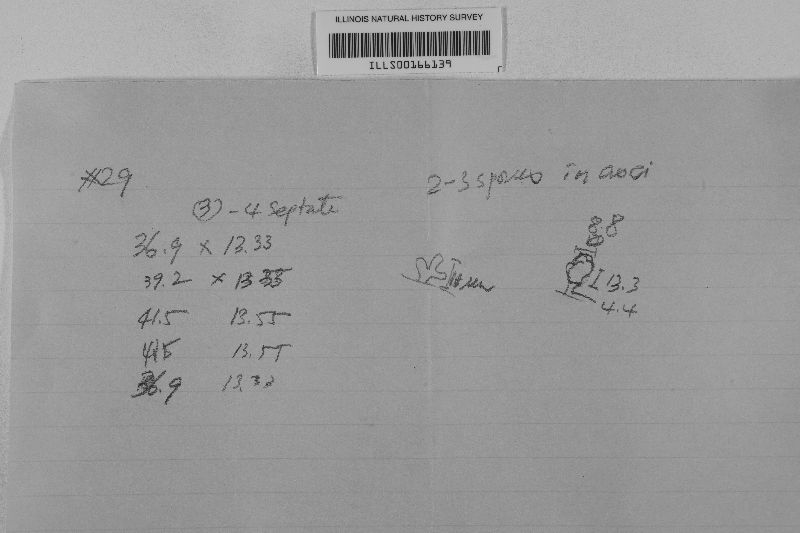 ILLINOIS NATURAL HISTORY SURVEY
ILLS00166139
#29
(3)-4 septate
36.9 x 13.33
39.2 x 13.33
41.5 13.55
41.5 13.55
36.9 13.33
2-3 spores in asci
13.3
4.4